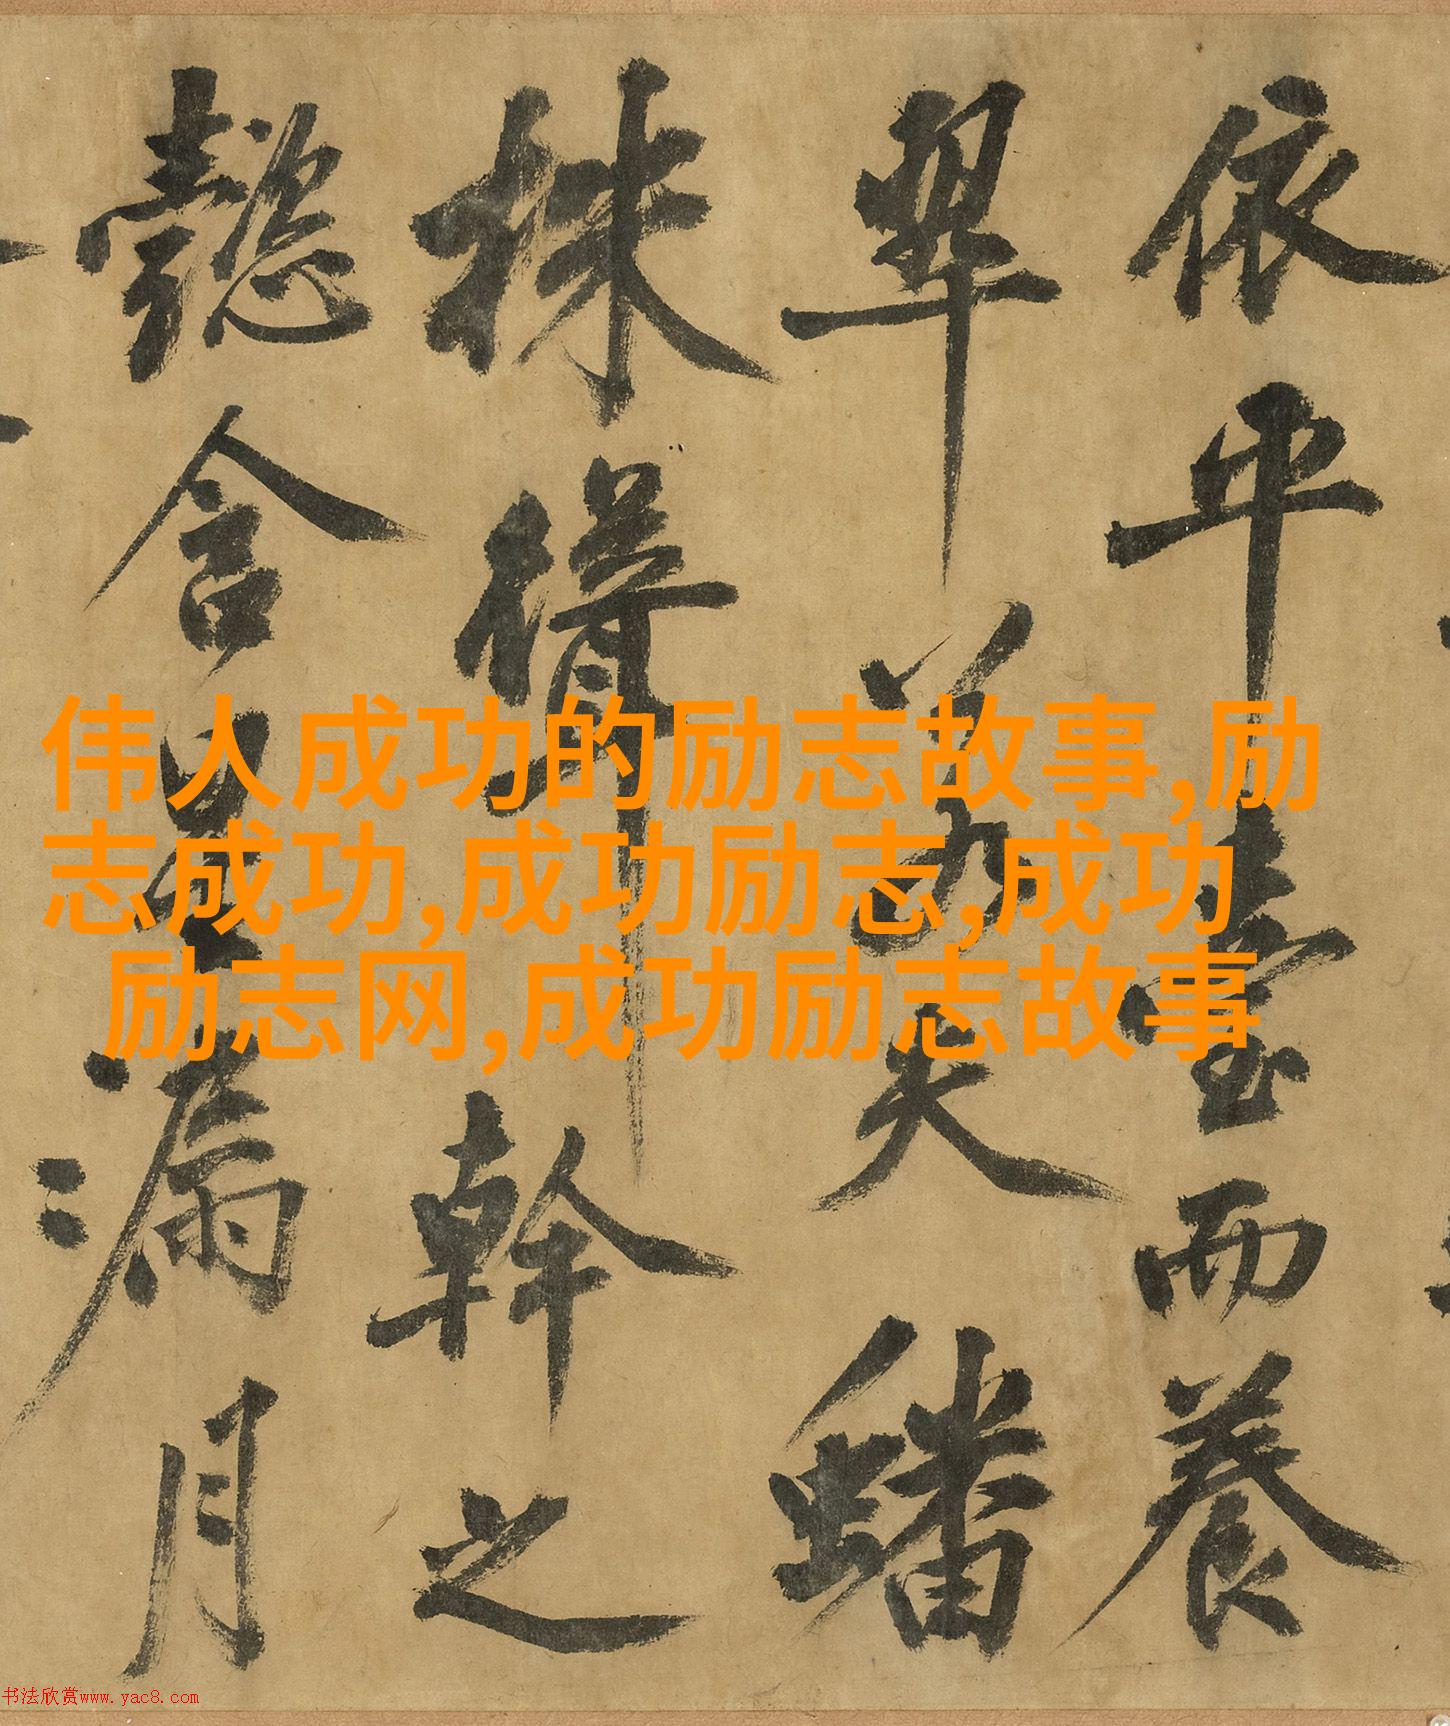 依平臺而養
翠若夫蟠
株聳幹之
懿含星漏月
伟人成功的励志故事,励
志成功,成功励志,成功
励志网,成功励志故事
书法欣赏www.yac8.com